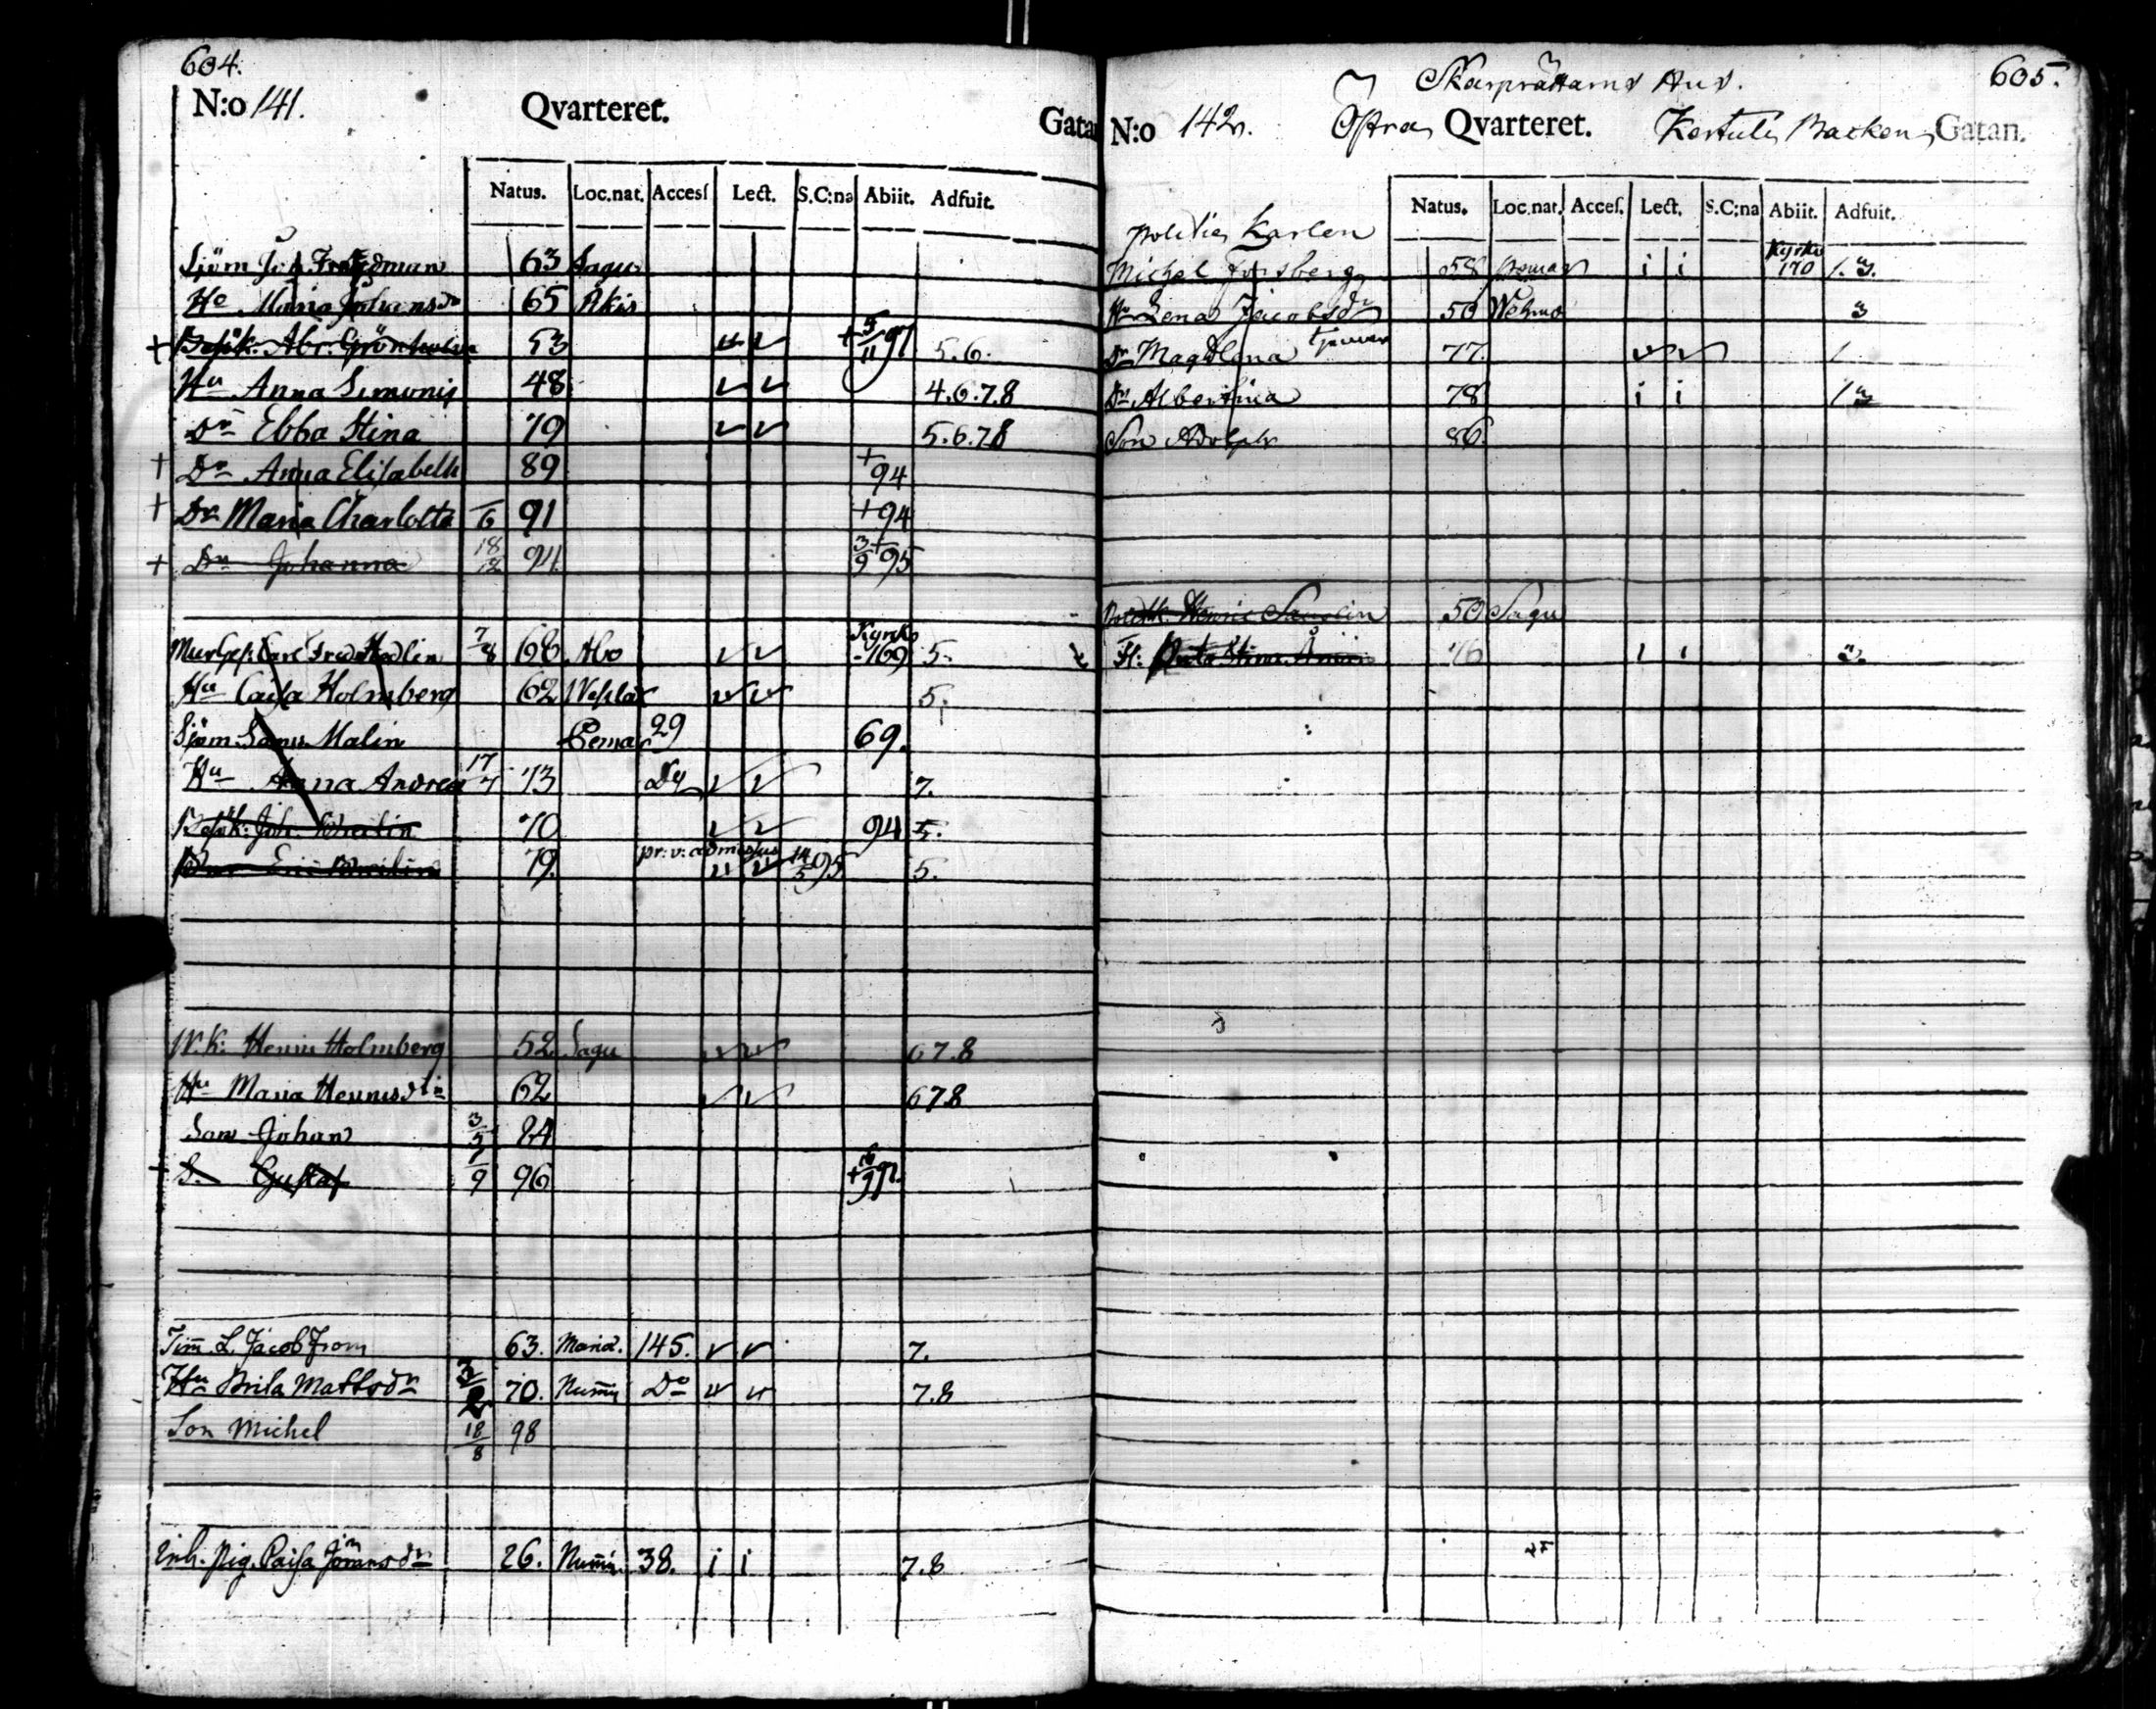 604.
N:o 141. Qvarteret. Gatan
Natus. Loc.nat. Accesſ Lect. S.C:na Abiit. Adfuit.
Sjöm Joh. 63 Sagu
Hu Maria Johans dr 65 Akis
+ Besök. Abr. Grönholm 53 + 5/11 97 5.6.
Hu Anna Simonis 48 4.6.7.8
Dr Ebba Stina 79 5.6.7.8
+ Dr Anna Elisabeth 89 + 94
+ Dr Maria Charlotta 91 + 94
+ Dr Johanna 18/12 94 3/9 + 95
MurGes: Carl Fred. Hedlin 7/8 68 Abo Kyrko 169 5.
Hu Caisa Holmberg 62 5.
Sjöm. Malin Pemar 29 69.
Hu Anna Andrea 17/7 73 7.
Besök: Joh. 70 94 5.
79. pr: v: admissus 14/5 95 5.
Holmberg 52 Sagu 6 7.8
Hu Maria Henricsdtr 62 6 7 8
Son Johan 84
+ S. Gustaf 7/9 96 + 16/9 97.
Tim. L. Jacob From 63. Maria. 145. 7.
Hu Brita Mattsdr 3/2 70. Numi Do 7.8
Son Michel 18/8 98
Inh. Pig. Caisa Jöransdr 26. Numi 38. i i 7.8
605.
Skarprättarens Hus.
N:o 142. Östra Qvarteret. Kertuli Backen Gatan.
Natus. Loc.nat. Acceſ. Lect. S.C:na Abiit. Adfuit.
Politie Karlen
Michel Forsberg 58 i i Kyrko 170 1.3.
Hu Lena Jacobsdr 50 Wehmo 3
Dr Magdlena 77 1
Dr Albertina 78 i i 1 3
Son Adolph 86
Henric 50 Sagu
Stina 76 i i 2.